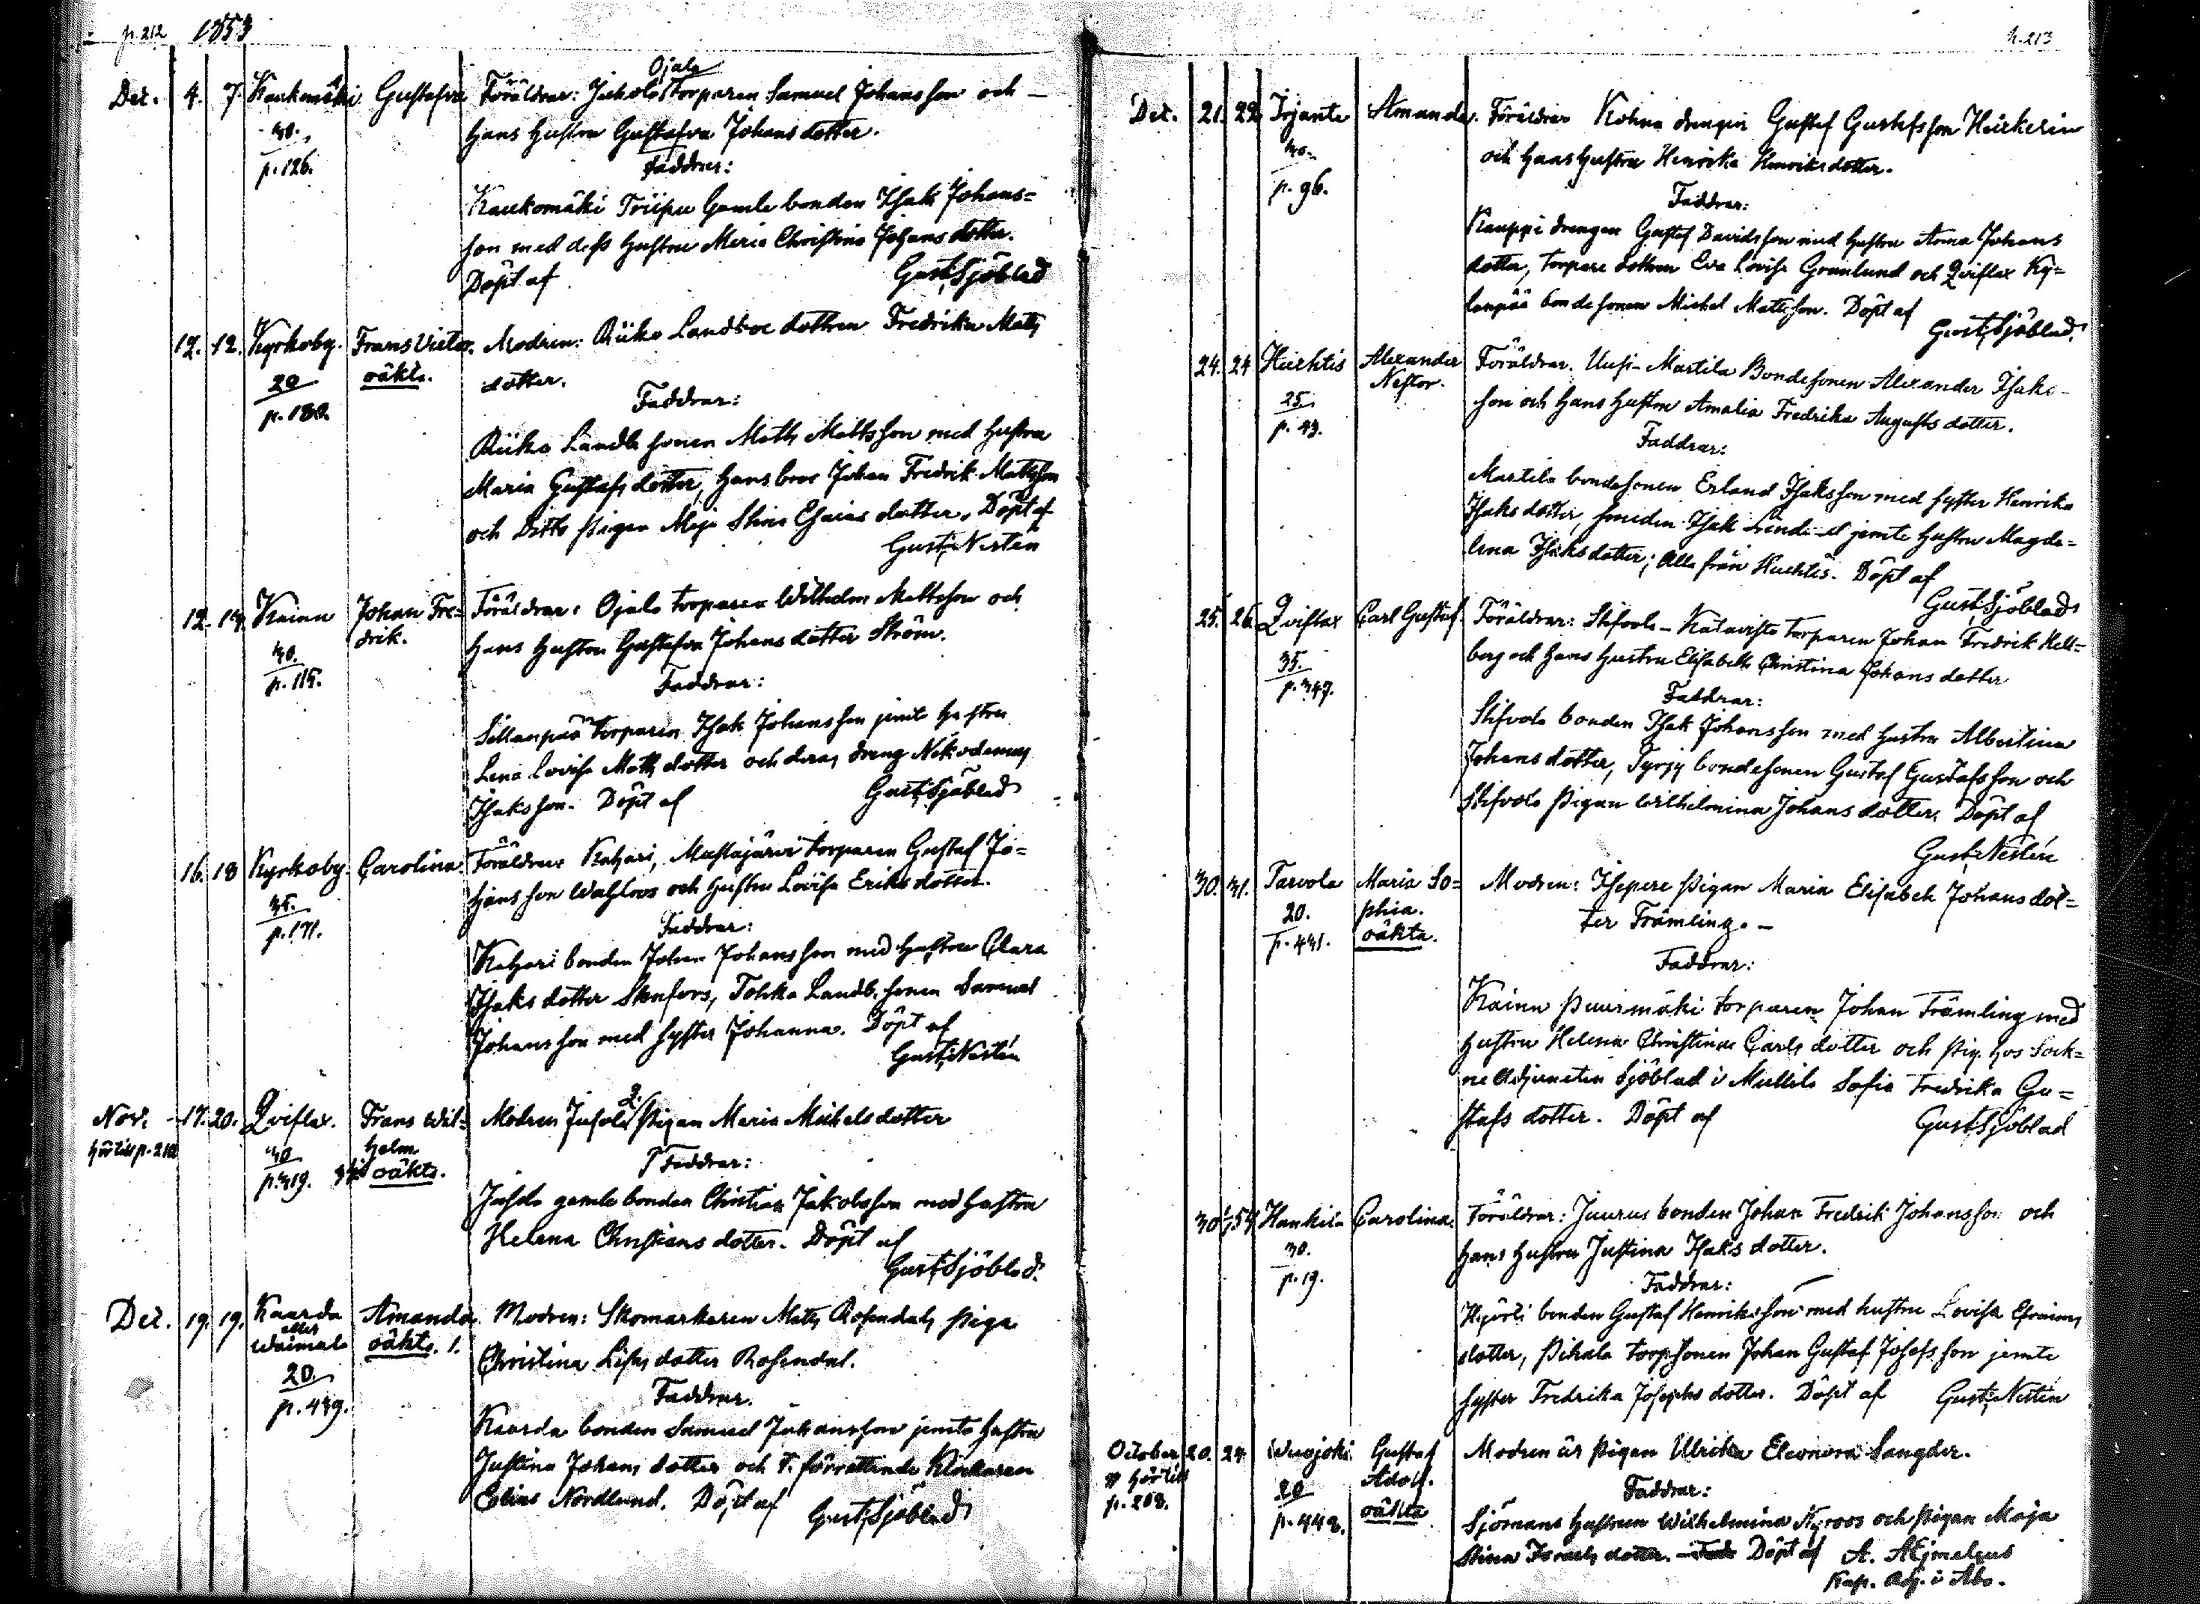 p. 212 1853
Dec. 4. 7. Kaukomäki Gustafva Föräldrar: Jakola Ojala Torparen Samuel Johansson och
30. hans hustru Gustafva Johansdotter.
p. 126. Faddrar:
Kaukomäki Gamle bonden Isak Johans=
son med dess hustru Maria Christina Johansdotter.
Döpt af Gust. Sjöblad
12. 12. Kyrkoby. Frans Victor. Modren: Riiko Fredrika Matts
20 oäkta. dotter.
Faddrar:
Riiko Landb. sonen Matts Mattsson med hustru
Maria Gustafsdotter, hans bror Johan Fredrik Mattsson
och Ditto pigan Maja Stina Esaiasdotter. Döpt af
Gust. Nestén
12. 14. Kainu Johan Fre= Föräldrar: Ojala torparen Wilhelm Mattsson och
30. drik. hans hustru Gustafva Johansdotter Ström.
p. 115. Faddrar:
Sillanpää torparen Isak Johansson jemte hustru
Lena Lovisa Mattsdotter och deras dreng Nikodemus
Isaksson. Döpt af Gust. Sjöblad
16. 18 Kyrkoby. Carolina. Föräldrar: Katjari, Mustajärvi torparen Gustaf Jo=
35. hansson Wahlroos och hustru Lovisa Eriksdotter.
p. 171. Faddrar:
Katjari bonden Johan Johansson med hustru Clara
Isaksdotter Stenfors, Tolkka Landb. sonen Samuel
Johansson med syster Johanna. Döpt af
Gust. Nestén
Nov. 17. 20. Qviflax. Frans Wil= Modren pigan Maria Michelsdotter
hör till p. 210 30 helm
p. 319. oäkta. Faddrar:
gamle bonden Christian Jakobsson med hustru
Helena Christiansdotter. Döpt af
Gust. Sjöblad.
Dec. 19. 19. Kaarda Amanda Modren: Skomakaren Matts Rosendals piga
eller oäkta. 1.
Waimala Christina Lisas dotter Rosendal.
20. Faddrar.
p. 439. Kaarda bonden Samuel Johansson jemte hustru
Justina Johansdotter och T. förrättande Klockaren
Elias Nordlund. Döpt af Gust. Sjöblad
p. 213
Dec. 21. 22. Irjante Amanda. Föräldrar Kohna drengen Gustaf Gustafsson
30. och hans hustru Henrika Henriksdotter.
p. 96. Faddrar:
Kauppi drengen Gustaf Davidsson med hustru Anna Johans
dotter, torpare dottren Eva Lovisa Granlund och Qviflax Ky=
länpää bondesonen Michel Mattsson. Döpt af
Gust. Sjöblad.
24. 24 Huchtis Alexander Föräldrar. Uusi-Martila Bondesonen Alexander Isaks-
25. Nestor. son och hans hustru Amalia Fredrika Augustsdotter.
p. 43. Faddrar:
Martila bondesonen Erland Isaksson med syster Henrika
Isaksdotter, smeden Isak jemte hustru Magda=
lena Isaksdotter; Alla från Huchtis. Döpt af
Gust. Sjöblad
25. 26. Qviflax Carl Gustaf. Föräldrar: Stifvola-Katavisto torparen Johan Fredrik Hell=
35. berg och hans hustru Elisabeth Christina Johansdotter
p. 347. Faddrar:
Stifvola bonden Isak Johansson med hustru Albertina
Johansdotter, Tyrjy bondesonen Gustaf Gustafsson och
Stifvola pigan Wilhelmina Johansdotter. Döpt af
Gust. Nestén
30. 31. Tarvola Maria So= Modren: Isopere pigan Maria Elisabeth Johansdot=
20. phia. ter Främling.-
p. 441. oäkta. Faddrar:
Kainu Puurmäki torparen Johan Främling med
hustru Helena Christina Carlsdotter och pig. hos Sock=
ne Adjuncten Sjöblad i Mullila Sofia Fredrika Gu=
stafsdotter. Döpt af Gust. Sjöblad
30. Hankila Carolina. Föräldrar: Juurus bonden Johan Fredrik Johansson och
30. hans hustru Justina Isaksdotter.
p. 19. Faddrar:
bonden Gustaf Henriksson med hustru Lovisa Efraims
dotter, Pihala torp. sonen Johan Gustaf Josefsson jemte
syster Fredrika Josephsdotter. Döpt af Gust. Nestén
October 20. 24. Wuojoki Gustaf Modren är pigan Ulrika Eleonora Sangder.
hör till 20 Adolf.
p. 208. p. 448. oäkta Faddrar:
Sjömans hustrun Wilhelmina Nyroos och pigan Maja
Stina Israelsdotter. Döpt af A. Aejmelæus
Kap. Adj. i Åbo.